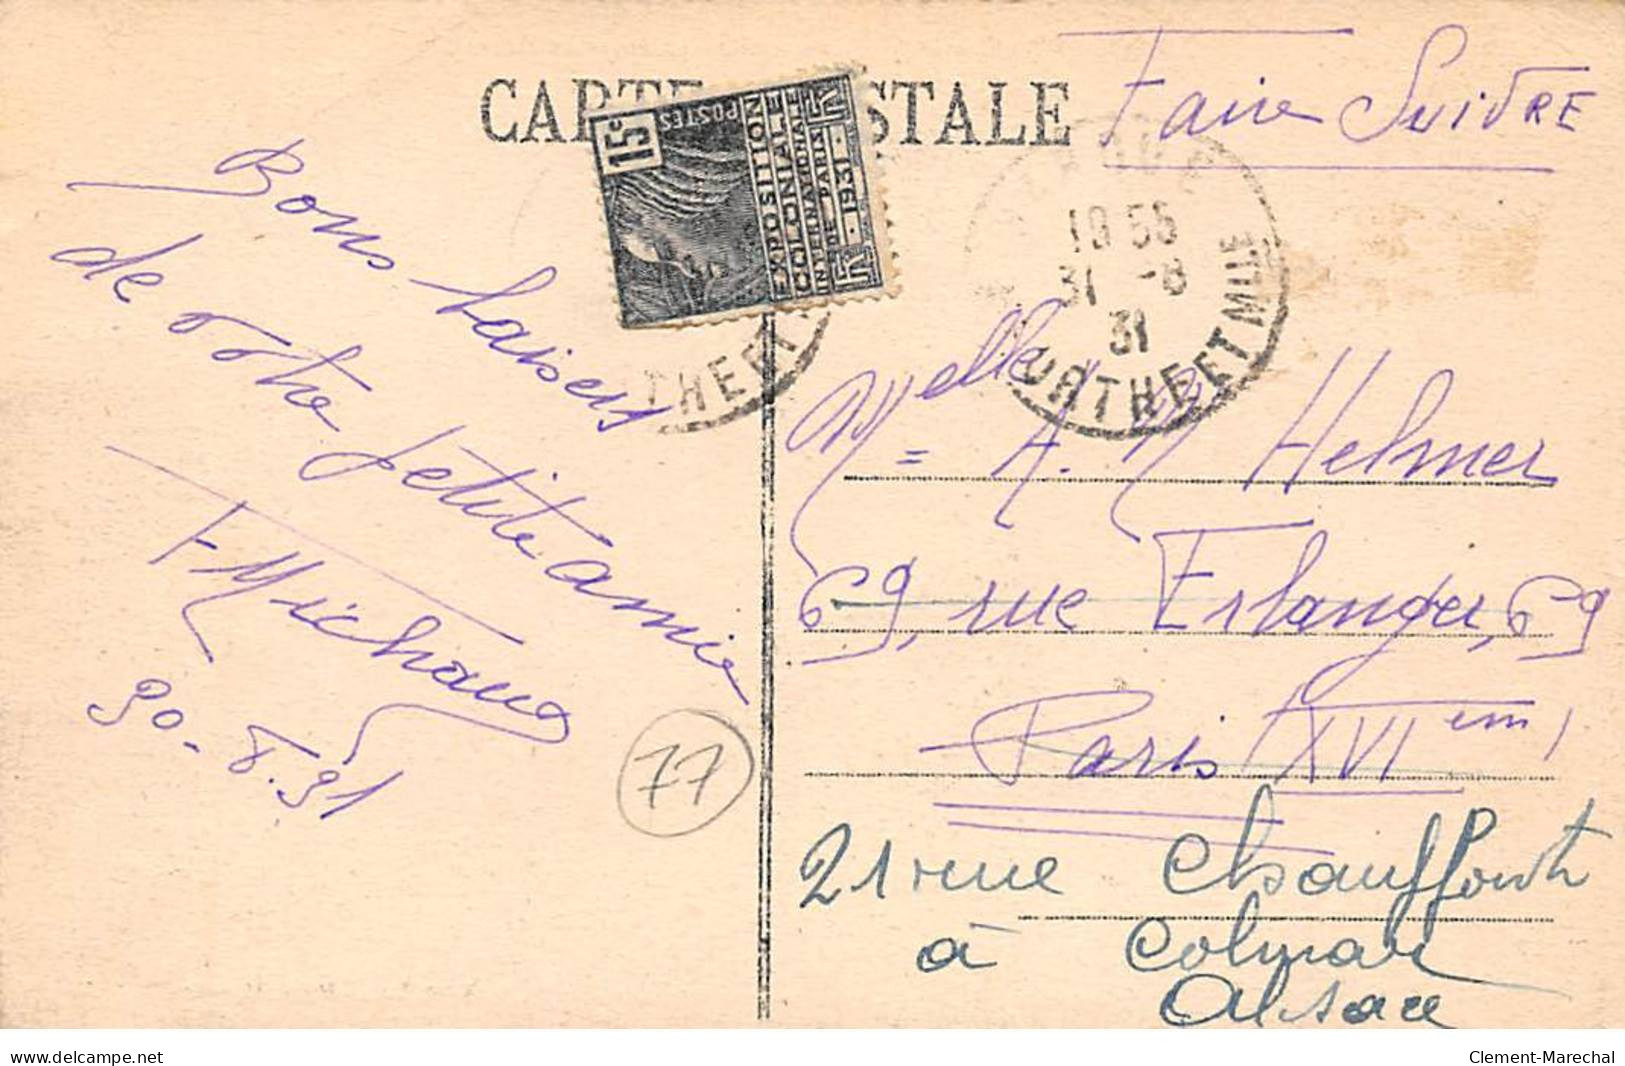 CARTE POSTALE
Faire SUIVRE
15c
POSTES
EXPOSITION
COLONIALE
INTERNATIONALE
DE PARIS
1931
Bons baisers
de votre petite amie
F Michaud
30-8.31
77
18 55
31 -8
31
THE ET
URTHE ET MLLE
Melle = A. M Helmer
69, rue Erlanger, 69
Paris XVI em
21 rue Chauffour
à Colmar
Alsace
www.delcampe.net
Clement-Marechal